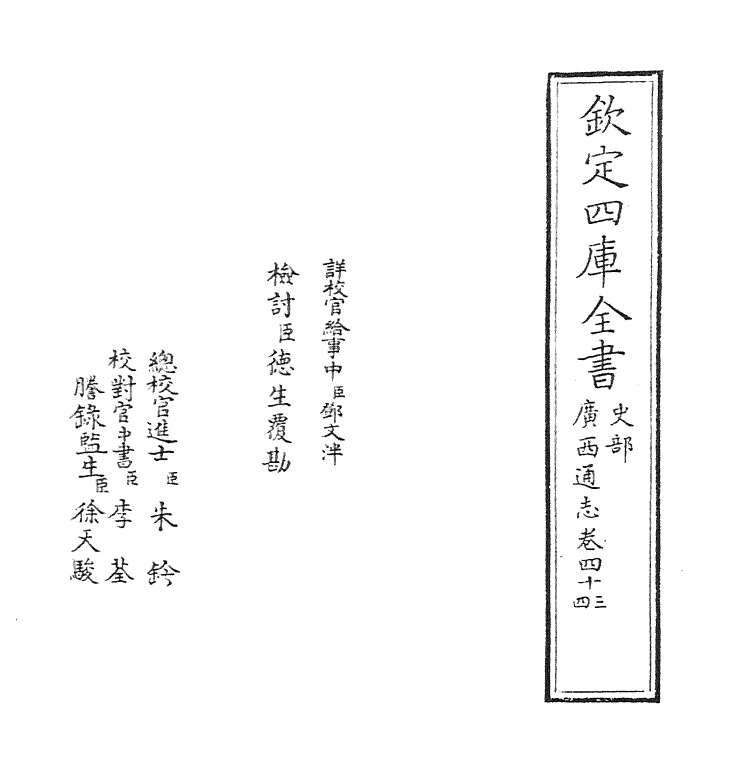 欽定四庫全書
史部
廣西通志卷四十三
四
詳校官給事中臣鄧文泮
檢討臣德生覆勘
總校官進士臣朱鈐
校對官中書臣李荃
謄錄監生臣徐天駿